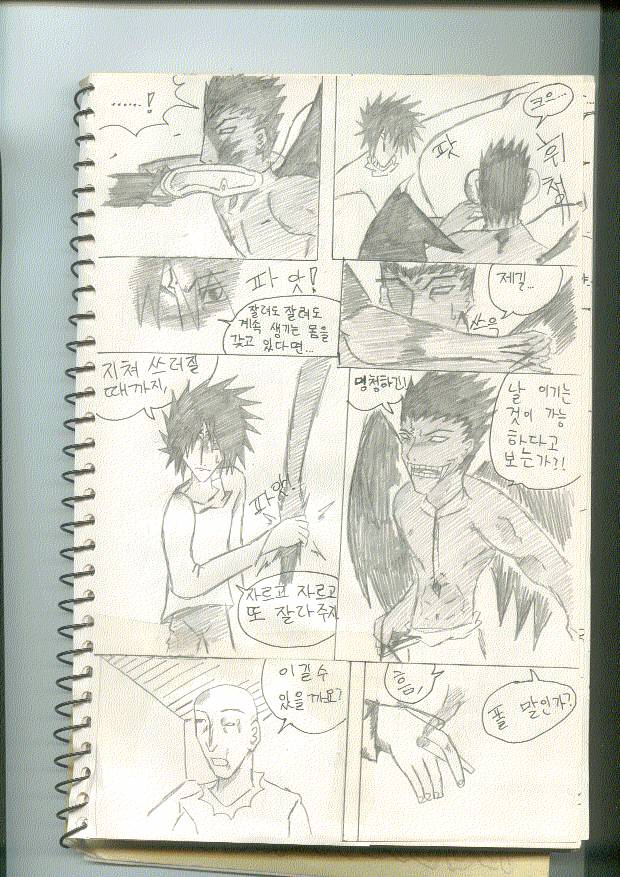 ......!
크으...
팟
휘
척
파 앗!
잘려도 잘려도
계속 생기는 몸을
갖고 있다면...
제길...
쓰윽
지쳐 쓰러질
때까지,
파앗!
자르고 자르고
또 잘라주지
멍청하긴!
날 이기는
것이 가능
하다고
보는가?!
이길 수
있을까요?
흐미
폴 말인가?